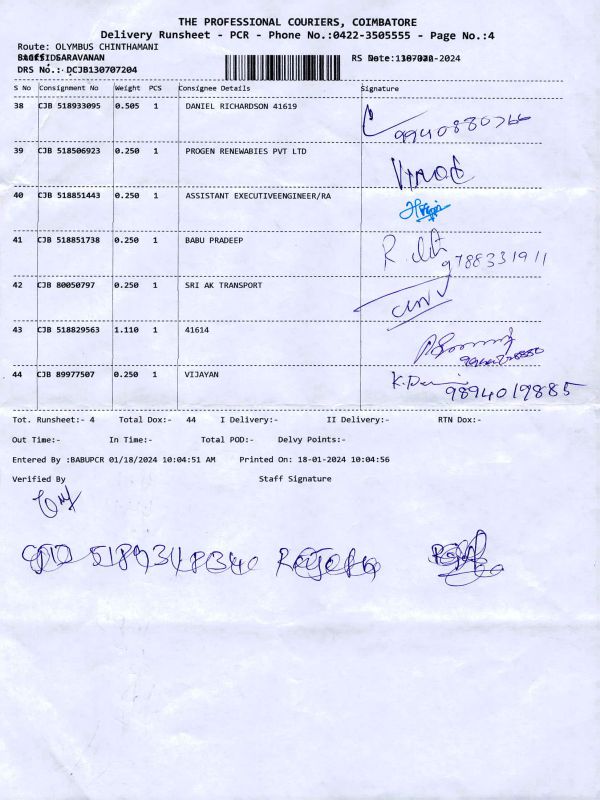 THE PROFESSIONAL COURIERS, COIMBATORE
Delivery Runsheet - PCR - Phone No.:0422-3505555 - Page No.:4
Route: OLYMBUS CHINTHAMANI
SARAVANAN RS Date: -2024
DRS No.: DCJB130707204
S No Consignment No Weight PCS Consignee Details Signature
38 CJB 518933095 0.505 1 DANIEL RICHARDSON 41619
39 CJB 518506923 0.250 1 PROGEN RENEWABIES PVT LTD
40 CJB 518851443 0.250 1 ASSISTANT EXECUTIVEENGINEER/RA
41 CJB 518851738 0.250 1 BABU PRADEEP 9788331911
42 CJB 80050797 0.250 1 SRI AK TRANSPORT
43 CJB 518829563 1.110 1 41614
44 CJB 89977507 0.250 1 VIJAYAN 9894019885
Tot. Runsheet:- 4 Total Dox:- 44 I Delivery:- II Delivery:- RTN Dox:-
Out Time:- In Time:- Total POD:- Delvy Points:-
Entered By :BABUPCR 01/18/2024 10:04:51 AM Printed On: 18-01-2024 10:04:56
Verified By Staff Signature